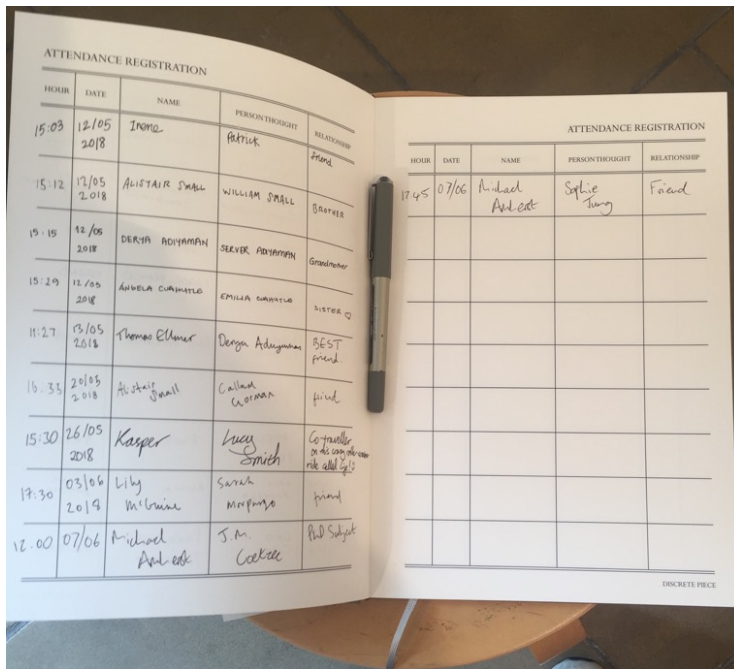 ATTENDANCE REGISTRATION
HOUR DATE NAME PERSON THOUGHT RELATIONSHIP
15:03 12/05 2018 Irene Patrick friend
15:12 12/05 2018 ALISTAIR SMALL WILLIAM SMALL BROTHER
15:15 12/05 2018 DERYA ADIYAMAN SERVER ADIYAMAN Grandmother
15:29 12/05 2018 ANGELA CUAHATLO EMILIA CUAHATLO SISTER ♡
11:27 13/05 2018 Thomas Ellmer Derya BEST friend.
20/05 2018 Alistair Small Callum Gorman friend
15:30 26/05 2018 Kasper Lucy Smith Co-traveller on this crazy ride called
17:30 03/06 2018 Lily McGuire Sarah friend
12.00 07/06 Michael J.M. Coetzee PhD Subject
ATTENDANCE REGISTRATION
HOUR DATE NAME PERSON THOUGHT RELATIONSHIP
17.45 07/06 Michael Sophie Jung Friend
DISCRETE PIECE